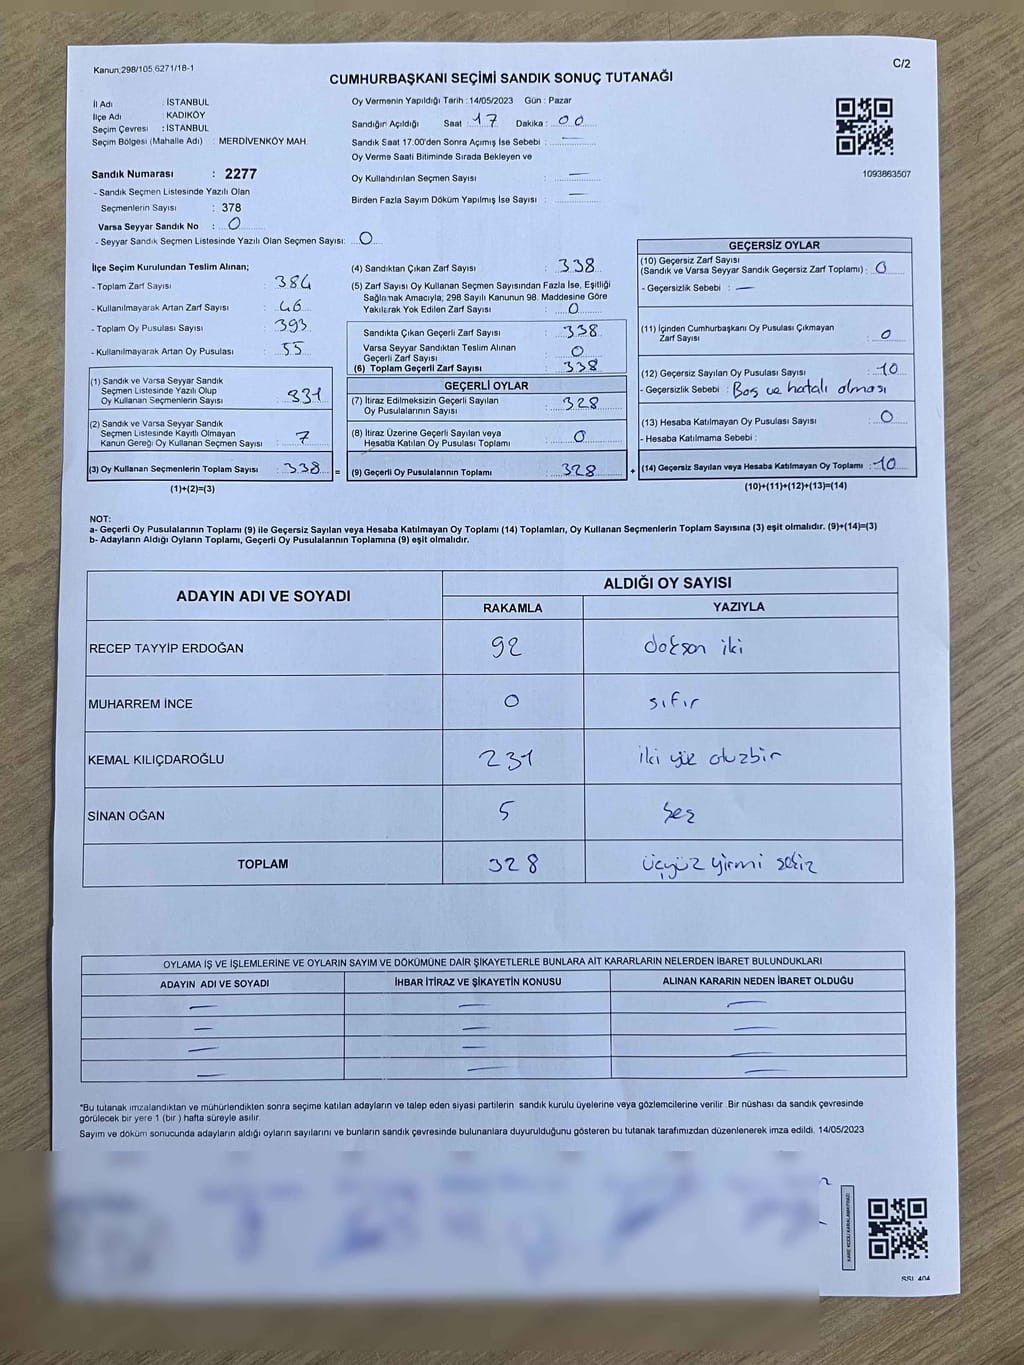 Kanun;298/105.6271/18-1
C/2
CUMHURBAŞKANI SEÇİMİ SANDIK SONUÇ TUTANAĞI
İl Adı : İSTANBUL
İlçe Adı : KADIKÖY
Seçim Çevresi : İSTANBUL
Seçim Bölgesi (Mahalle Adı) : MERDİVENKÖY MAH.
Oy Vermenin Yapıldığı Tarih : 14/05/2023 Gün : Pazar
Sandığın Açıldığı Saat : 17 Dakika : 00
Sandık Saat 17.00'den Sonra Açımış İse Sebebi : —
Oy Verme Saati Bitiminde Sırada Bekleyen ve
Oy Kullandırılan Seçmen Sayısı : —
Birden Fazla Sayım Döküm Yapılmış İse Sayısı : —
1093863507
Sandık Numarası : 2277
- Sandık Seçmen Listesinde Yazılı Olan
Seçmenlerin Sayısı : 378
Varsa Seyyar Sandık No : 0
- Seyyar Sandık Seçmen Listesinde Yazılı Olan Seçmen Sayısı: 0
İlçe Seçim Kurulundan Teslim Alınan;
- Toplam Zarf Sayısı : 384
- Kullanılmayarak Artan Zarf Sayısı : 46
- Toplam Oy Pusulası Sayısı : 393
- Kullanılmayarak Artan Oy Pusulası : 55
(1) Sandık ve Varsa Seyyar Sandık
Seçmen Listesinde Yazılı Olup
Oy Kullanan Seçmenlerin Sayısı : 331
(2) Sandık ve Varsa Seyyar Sandık
Seçmen Listesinde Kayıtlı Olmayan
Kanun Gereği Oy Kullanan Seçmen Sayısı : 7
(3) Oy Kullanan Seçmenlerin Toplam Sayısı : 338 =
(1)+(2)=(3)
(4) Sandıktan Çıkan Zarf Sayısı : 338
(5) Zarf Sayısı Oy Kullanan Seçmen Sayısından Fazla İse, Eşitliği
Sağlamak Amacıyla; 298 Sayılı Kanunun 98. Maddesine Göre
Yakılarak Yok Edilen Zarf Sayısı : 0
Sandıkta Çıkan Geçerli Zarf Sayısı : 338
Varsa Seyyar Sandıktan Teslim Alınan
Geçerli Zarf Sayısı : 0
(6) Toplam Geçerli Zarf Sayısı : 338
GEÇERLİ OYLAR
(7) İtiraz Edilmeksizin Geçerli Sayılan
Oy Pusulalarının Sayısı : 328
(8) İtiraz Üzerine Geçerli Sayılan veya
Hesaba Katılan Oy Pusulası Toplamı : 0
(9) Geçerli Oy Pusulalarının Toplamı : 328 +
GEÇERSİZ OYLAR
(10) Geçersiz Zarf Sayısı
(Sandık ve Varsa Seyyar Sandık Geçersiz Zarf Toplamı) : 0
- Geçersizlik Sebebi : —
(11) İçinden Cumhurbaşkanı Oy Pusulası Çıkmayan
Zarf Sayısı : 0
(12) Geçersiz Sayılan Oy Pusulası Sayısı : 10
- Geçersizlik Sebebi : Boş ve hatalı olması
(13) Hesaba Katılmayan Oy Pusulası Sayısı : 0
- Hesaba Katılmama Sebebi :
(14) Geçersiz Sayılan veya Hesaba Katılmayan Oy Toplamı : 10
(10)+(11)+(12)+(13)=(14)
NOT:
a- Geçerli Oy Pusulalarının Toplamı (9) ile Geçersiz Sayılan veya Hesaba Katılmayan Oy Toplamı (14) Toplamları, Oy Kullanan Seçmenlerin Toplam Sayısına (3) eşit olmalıdır. (9)+(14)=(3)
b- Adayların Aldığı Oyların Toplamı, Geçerli Oy Pusulalarının Toplamına (9) eşit olmalıdır.
ADAYIN ADI VE SOYADI
ALDIĞI OY SAYISI
RAKAMLA YAZIYLA
RECEP TAYYİP ERDOĞAN 92 doksan iki
MUHARREM İNCE 0 sıfır
KEMAL KILIÇDAROĞLU 231 iki yüz otuzbir
SİNAN OĞAN 5 beş
TOPLAM 328 üçyüz yirmi sekiz
OYLAMA İŞ VE İŞLEMLERİNE VE OYLARIN SAYIM VE DÖKÜMÜNE DAİR ŞİKAYETLERLE BUNLARA AİT KARARLARIN NELERDEN İBARET BULUNDUKLARI
ADAYIN ADI VE SOYADI İHBAR İTİRAZ VE ŞİKAYETİN KONUSU ALINAN KARARIN NEDEN İBARET OLDUĞU
— — —
— — —
— — —
— — —
*Bu tutanak imzalandıktan ve mühürlendikten sonra seçime katılan adayların ve talep eden siyasi partilerin sandık kurulu üyelerine veya gözlemcilerine verilir. Bir nüshası da sandık çevresinde
görülecek bir yere 1 (bir ) hafta süreyle asılır.
Sayım ve döküm sonucunda adayların aldığı oyların sayılarını ve bunların sandık çevresinde bulunanlara duyurulduğunu gösteren bu tutanak tarafımızdan düzenlenerek imza edildi. 14/05/2023
KARE KODU KARALAMAYINIZ!